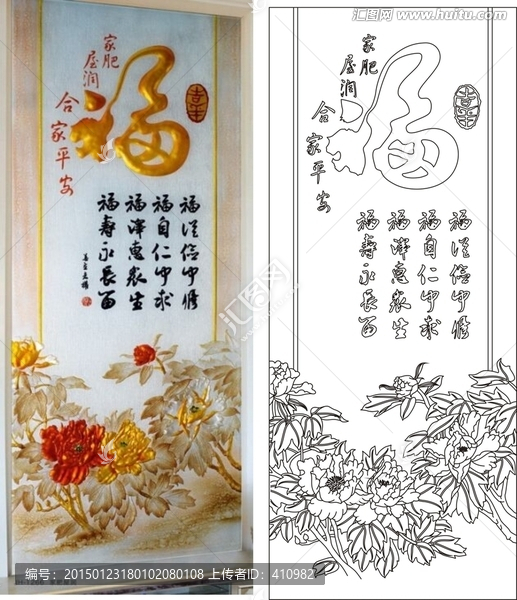 汇图网
www.huitu.com
家肥
屋润
合家平安
福
福從信中修
福自仁中求
福泽惠众生
福寿永长留
家肥
屋润
合家平安
福
福從信中修
福自仁中求
福泽惠众生
福寿永长留
编号：20150123180102080108 上传者ID：410982